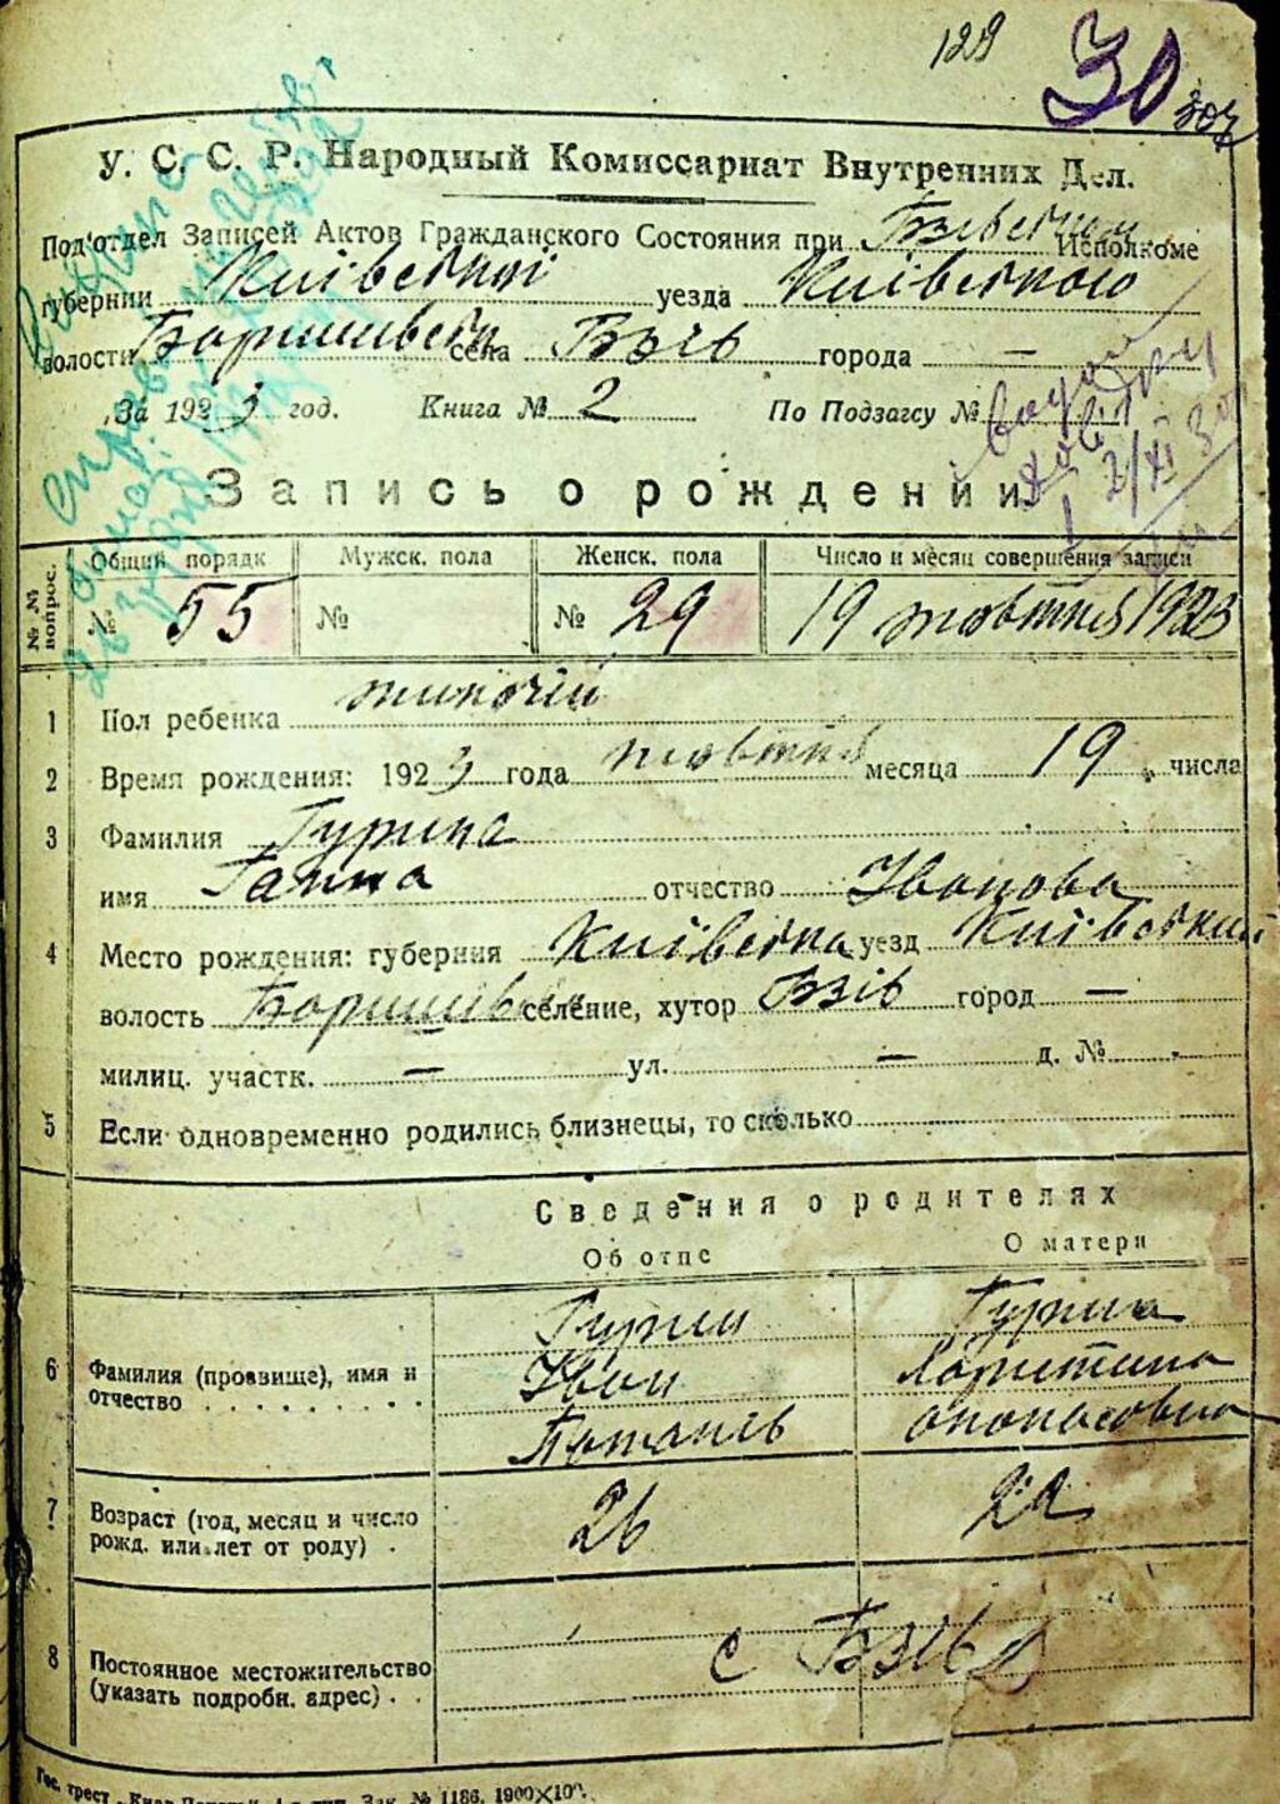 129 30 зоч
У. С. С. Р. Народный Комиссариат Внутренних Дел.
Под'отдел Записей Актов Гражданского Состояния при Бзівськім Исполкоме
губернии Київської уезда Київського
волости Боришівськ села Бзів города —
За 1923 год. Книга № 2 По Подзагсу №
Запись о рождении
№ № вопрос. Общий порядк Мужск. пола Женск. пола Число и месяц совершения записи
№ 55 № № 29 19 жовтня 1923
1 Пол ребенка жиночий
2 Время рождения: 1923 года жовтня месяца 19 числа
3 Фамилия Гурина
имя Ганна отчество Іванова
4 Место рождения: губерния Київська уезд Київський
волость Боришівськ селение, хутор Бзів город —
милиц. участк. — ул. — д. № -
5 Если одновременно родились близнецы, то сколько
Сведения о родителях
Об отце О матери
Гурин Гурина
6 Фамилия (прозвище), имя и отчество Іван Харитина
Потапів Опанасовна
7 Возраст (год, месяц и число рожд. или лет от роду) 26 22
8 Постоянное местожительство (указать подробн. адрес) с Бзів
Гос. трест „Киев-Печать“ 4-я тип. Зак. № 1186. 1900×100.